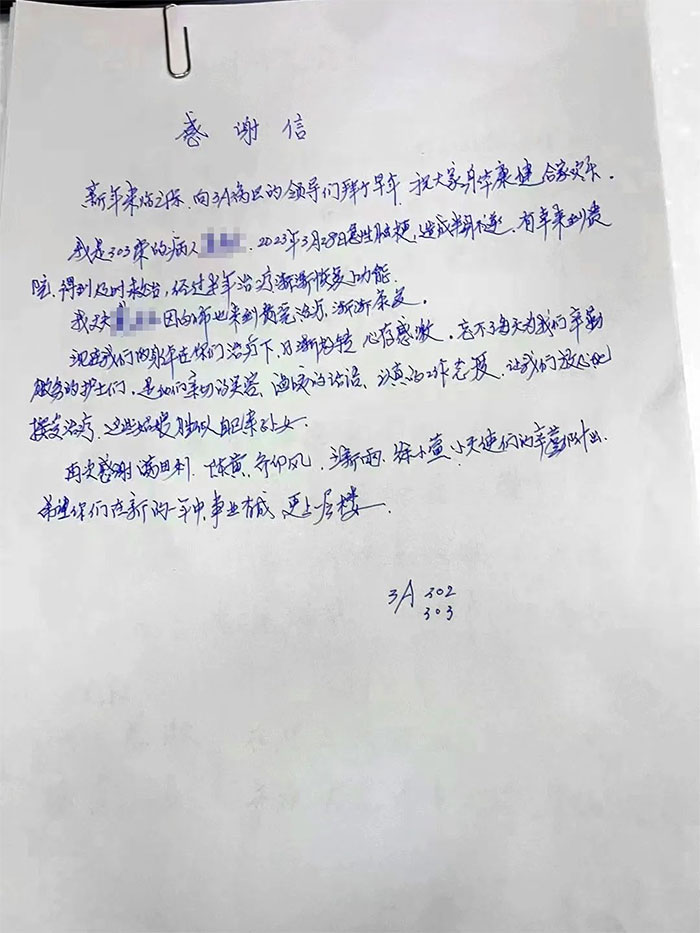 感谢信
新年来临之际，向3A病区的领导们拜个早年，祝大家身体康健 合家欢乐。
我是303床的病人 2023年3月29日急性脑梗，造成半身不遂，有幸来到贵
院，得到及时救治，经过半年治疗渐渐恢复上功能。
我丈夫 因 也来到贵院治疗，渐渐康复。
现在我们的身体在你们治疗下，日渐好转 心存感激，忘不了每天为我们辛勤
服务的护士们，是他们亲切的笑容、 的话语、认真的工作态度，让我们放心地
接受治疗，这些姑娘胜似自己亲 女。
再次感谢 陈寅、 徐小萱，小天使们的辛 付出。
希望你们在新的一年中，事业有成，更上一层楼。
3A 302
303